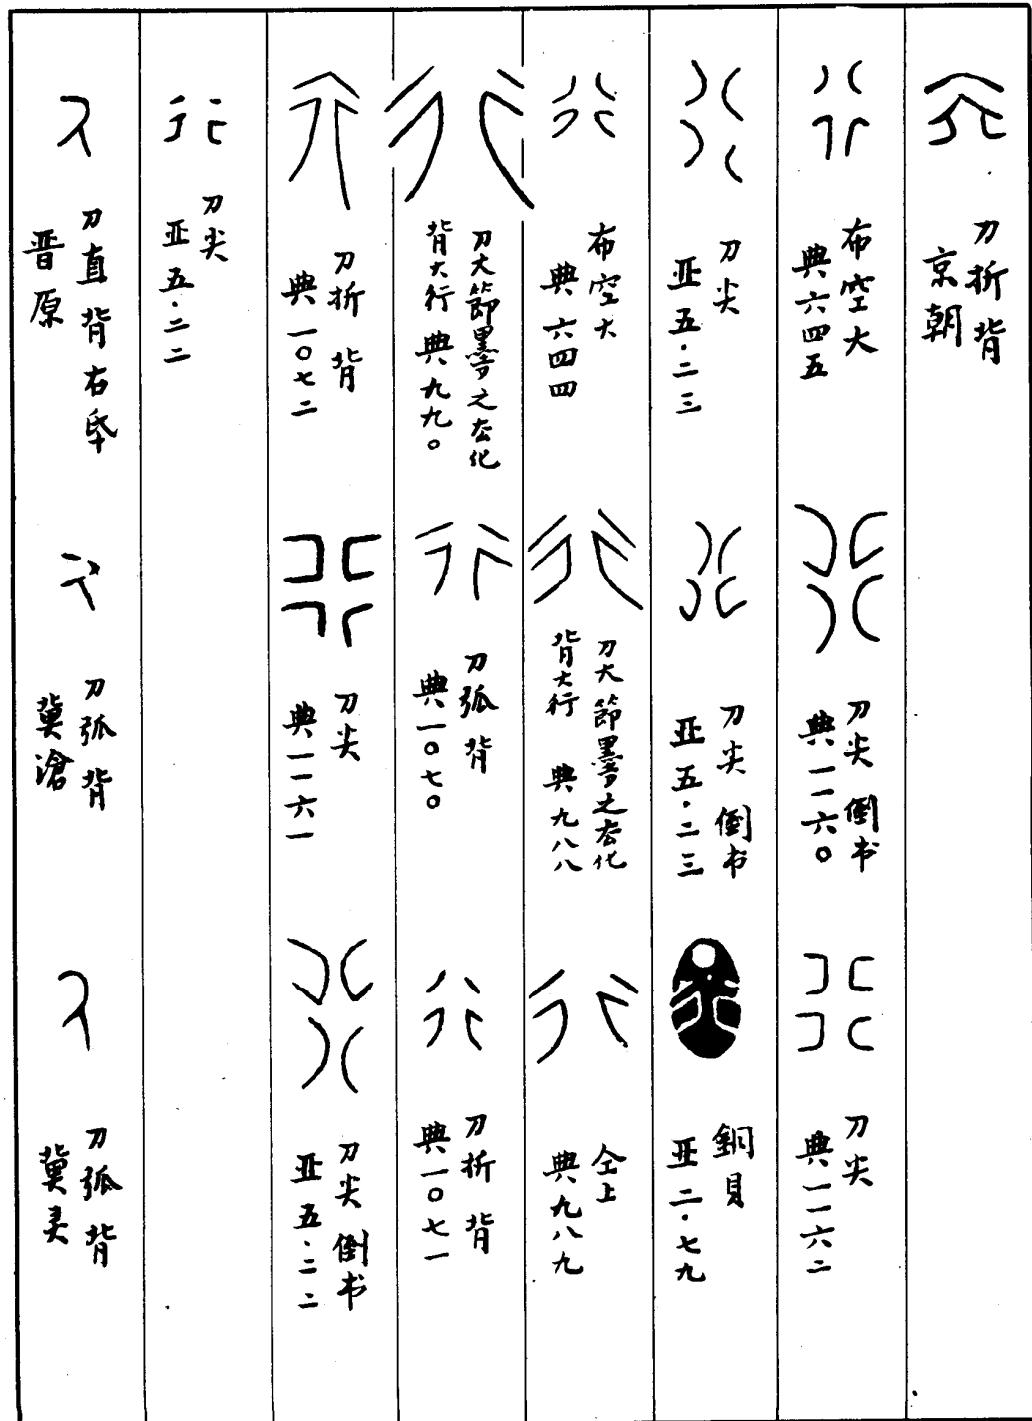 刀折背
京朝
布空大
典六四五
刀尖 倒书
典一一六〇
刀尖
典一一六二
刀尖
亚五·二三
刀尖 倒书
亚五·二三
銅貝
亚二·七九
布空大
典六四四
刀大節墨之夻化
背大行 典九八八
仝上
典九八九
刀大節墨之夻化
背大行 典九九〇
刀弧背
典一〇七〇
刀折背
典一〇七一
刀折背
典一〇七二
刀尖
典一一六一
刀尖 倒书
亚五·二二
刀尖
亚五·二二
刀直背右
晋原
刀弧背
冀滄
刀弧背
冀灵